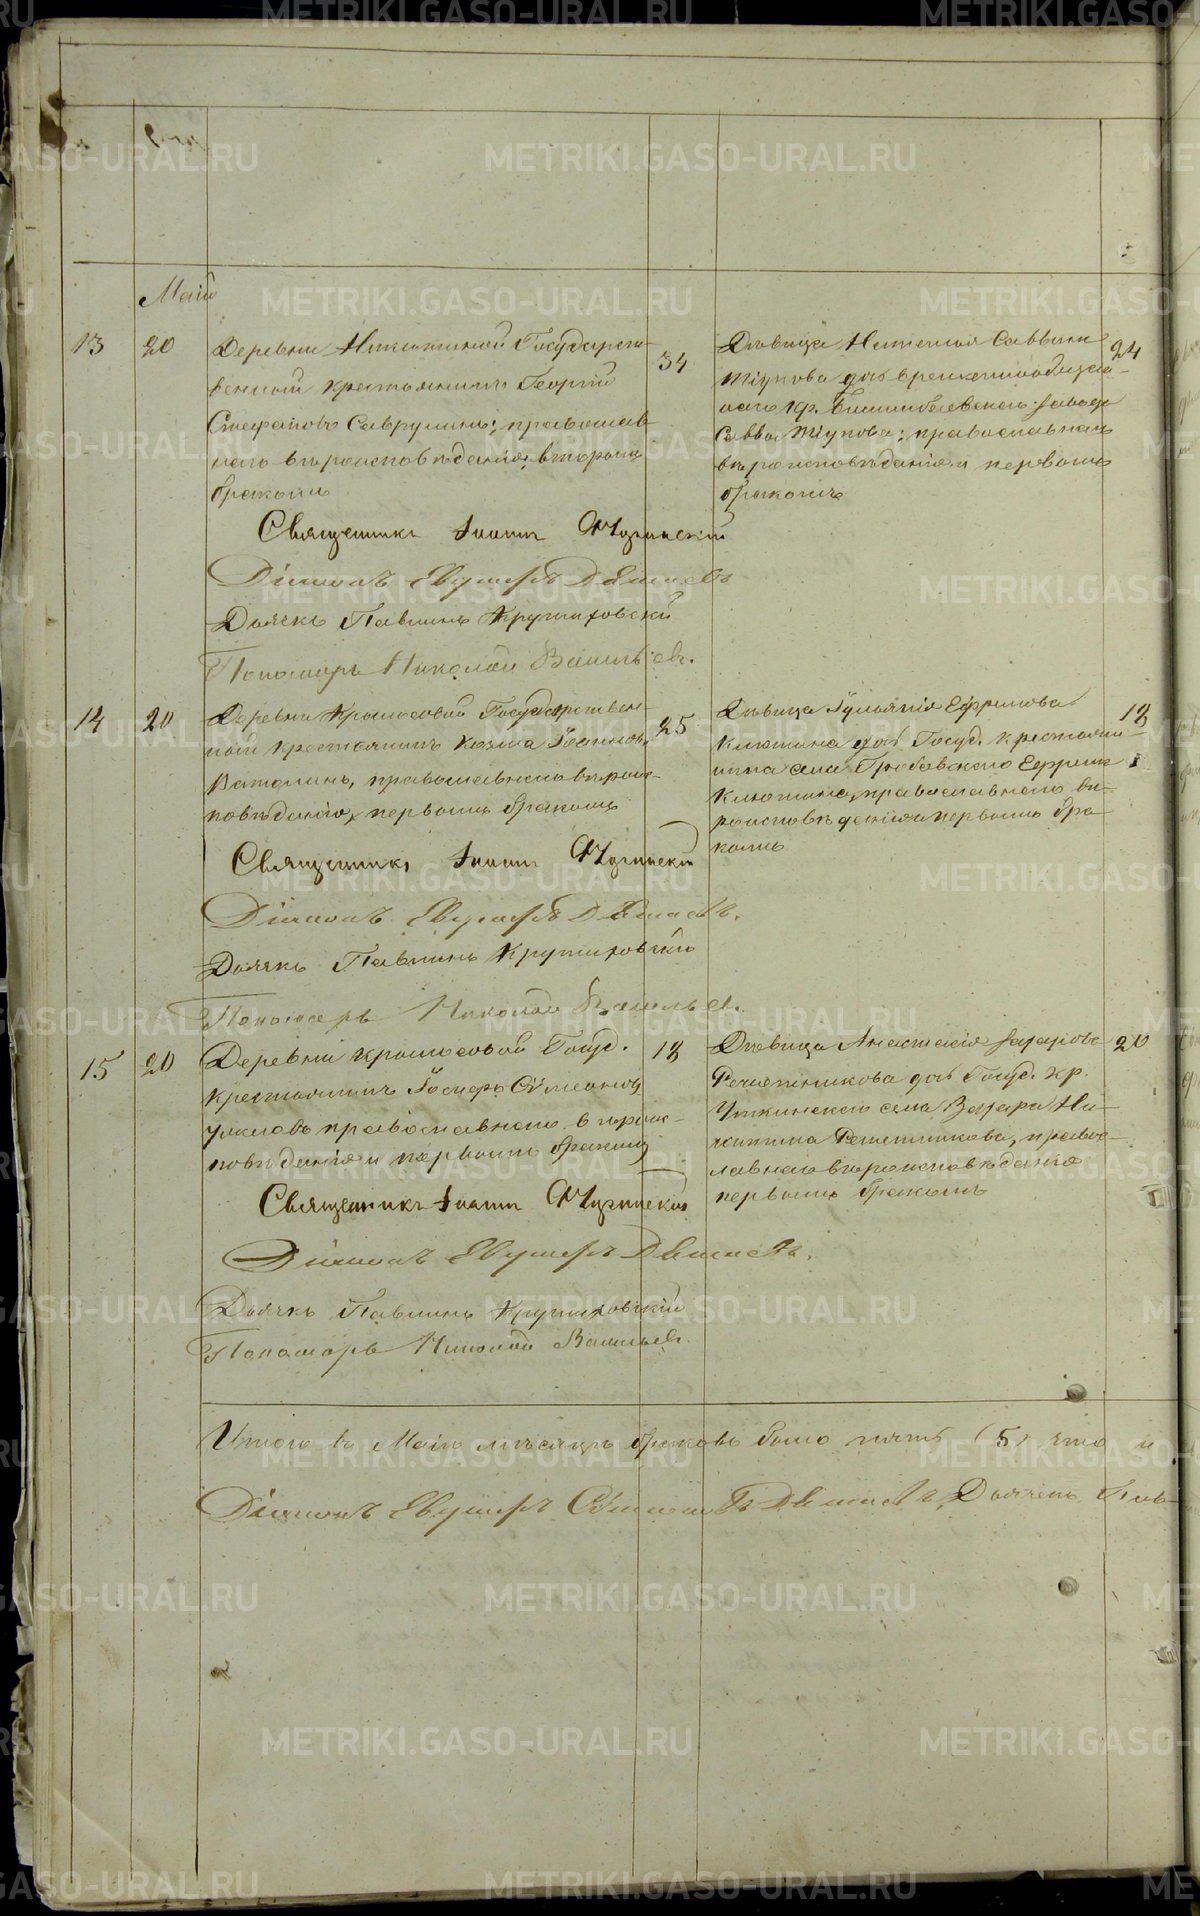 Май
13 20 Деревни Никитиной Государст-
веннный крестьянинъ Георгій
Стефановъ Саврулинъ, православ
наго вѣроисповѣданія, вторымъ
бракомъ
34
Дѣвица Наталія Саввина
Тіунова дочь временнообязан-
наго кр. Билимбаевскаго завода
Саввы Тіунова; православнаго
вѣроисповѣданія и первымъ
бракомъ
24
Священникъ Іоаннъ
Діаконъ Евгмефъ
Дьячекъ Павлинъ Крутиховскій
Пономарь Николай Васильевъ.
14 20 Деревни Крылосовой Государствен-
ный крестьянинъ Козма Іоанновъ
Ватолинъ, православнаго вѣроис-
повѣданія, первымъ бракомъ
25
Дѣвица Іуліанія Ефримова
Клюкина дочь Госуд. крестьяни-
нина села Гробовскаго Ефрима
Клюкина, православнаго вѣ-
роисповѣданія и первымъ бра-
комъ
18
Священникъ Іоаннъ
Діаконъ
Дьячекъ Павлинъ Крутиховскій
Пономарь Николай Васильевъ.
15 20 Деревни Крылосовой Госуд.
крестьянинъ Іосифъ Сѵмеоновъ
православнаго вѣроис-
повѣданія и первымъ бракомъ
18
Дѣвица Анастасія Захарова
Решетникова дочь Госуд. кр.
Уткинскаго села Захара Ни-
китина Решетникова, правос-
лавнаго вѣроисповѣданія
первымъ бракомъ
20
Священникъ Іоаннъ
Діаконъ
Дьячекъ Павлинъ Крутиховскій
Пономарь Николай Васильевъ.
Итого въ Маіѣ мѣсяцѣ браковъ было пять (5) что и
Діаконъ Дьячекъ Пав-
METRIKI.GASO-URAL.RU